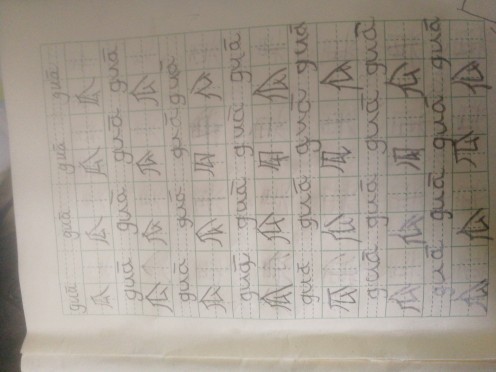 guā guā guā guā
瓜 瓜 瓜 瓜
guā guā guā guā
瓜 瓜 瓜 瓜
guā guā guā guā
瓜 瓜 瓜 瓜
guā guā guā guā
瓜 瓜 瓜 瓜
guā guā guā guā
瓜 瓜 瓜 瓜
guā guā guā guā
瓜 瓜 瓜 瓜
guā guā guā guā
瓜 瓜 瓜 瓜